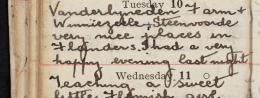 Tuesday 10
Vanderbyreden Farm +
Winniezeele, Steenvoorde
very nice places in
Flanders. I had a very
happy evening last night
Wednesday 11
Teaching a sweet
little Flemish girl